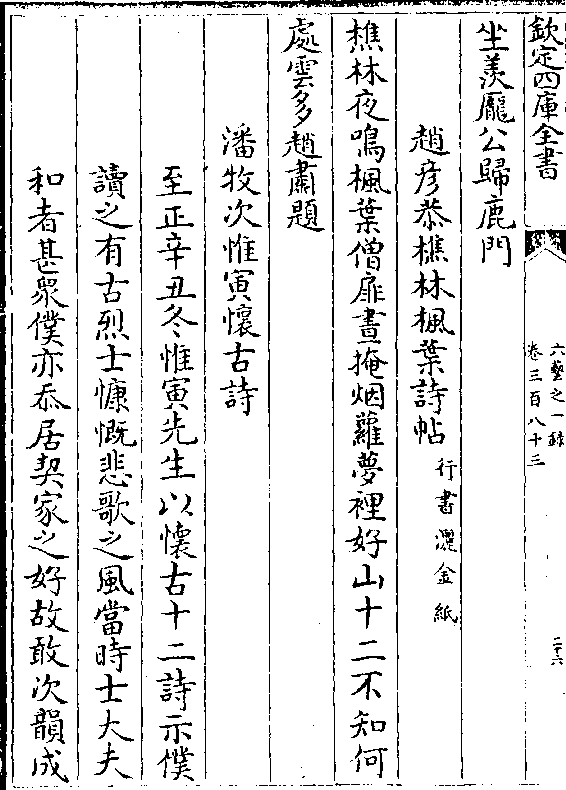 欽定四庫全書
六藝之一錄
卷三百八十三
二十六
坐羨龎公歸鹿門
趙彦恭樵林楓葉詩帖 行書灑金紙
樵林夜鳴楓葉僧扉晝掩烟蘿夢裡好山十二不知何
處雲多趙肅題
潘牧次惟寅懷古詩
至正辛丑冬惟寅先生以懷古十二詩示僕
讀之有古烈士慷慨悲歌之風當時士大夫
和者甚衆僕亦忝居契家之好故敢次韻成